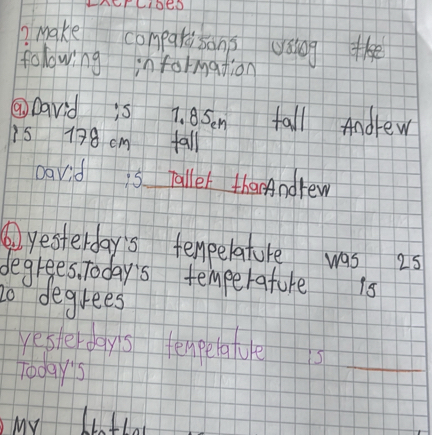 Exercises
? Make comparisons using the
following information
a. David is 1.85cm tall Andrew
is 178 cm tall
David is Taller than Andrew
b. yesterday's temperature was 25
degrees. Today's temperature is
20 degrees
yesterday's temperature is ______
Today's
My brother